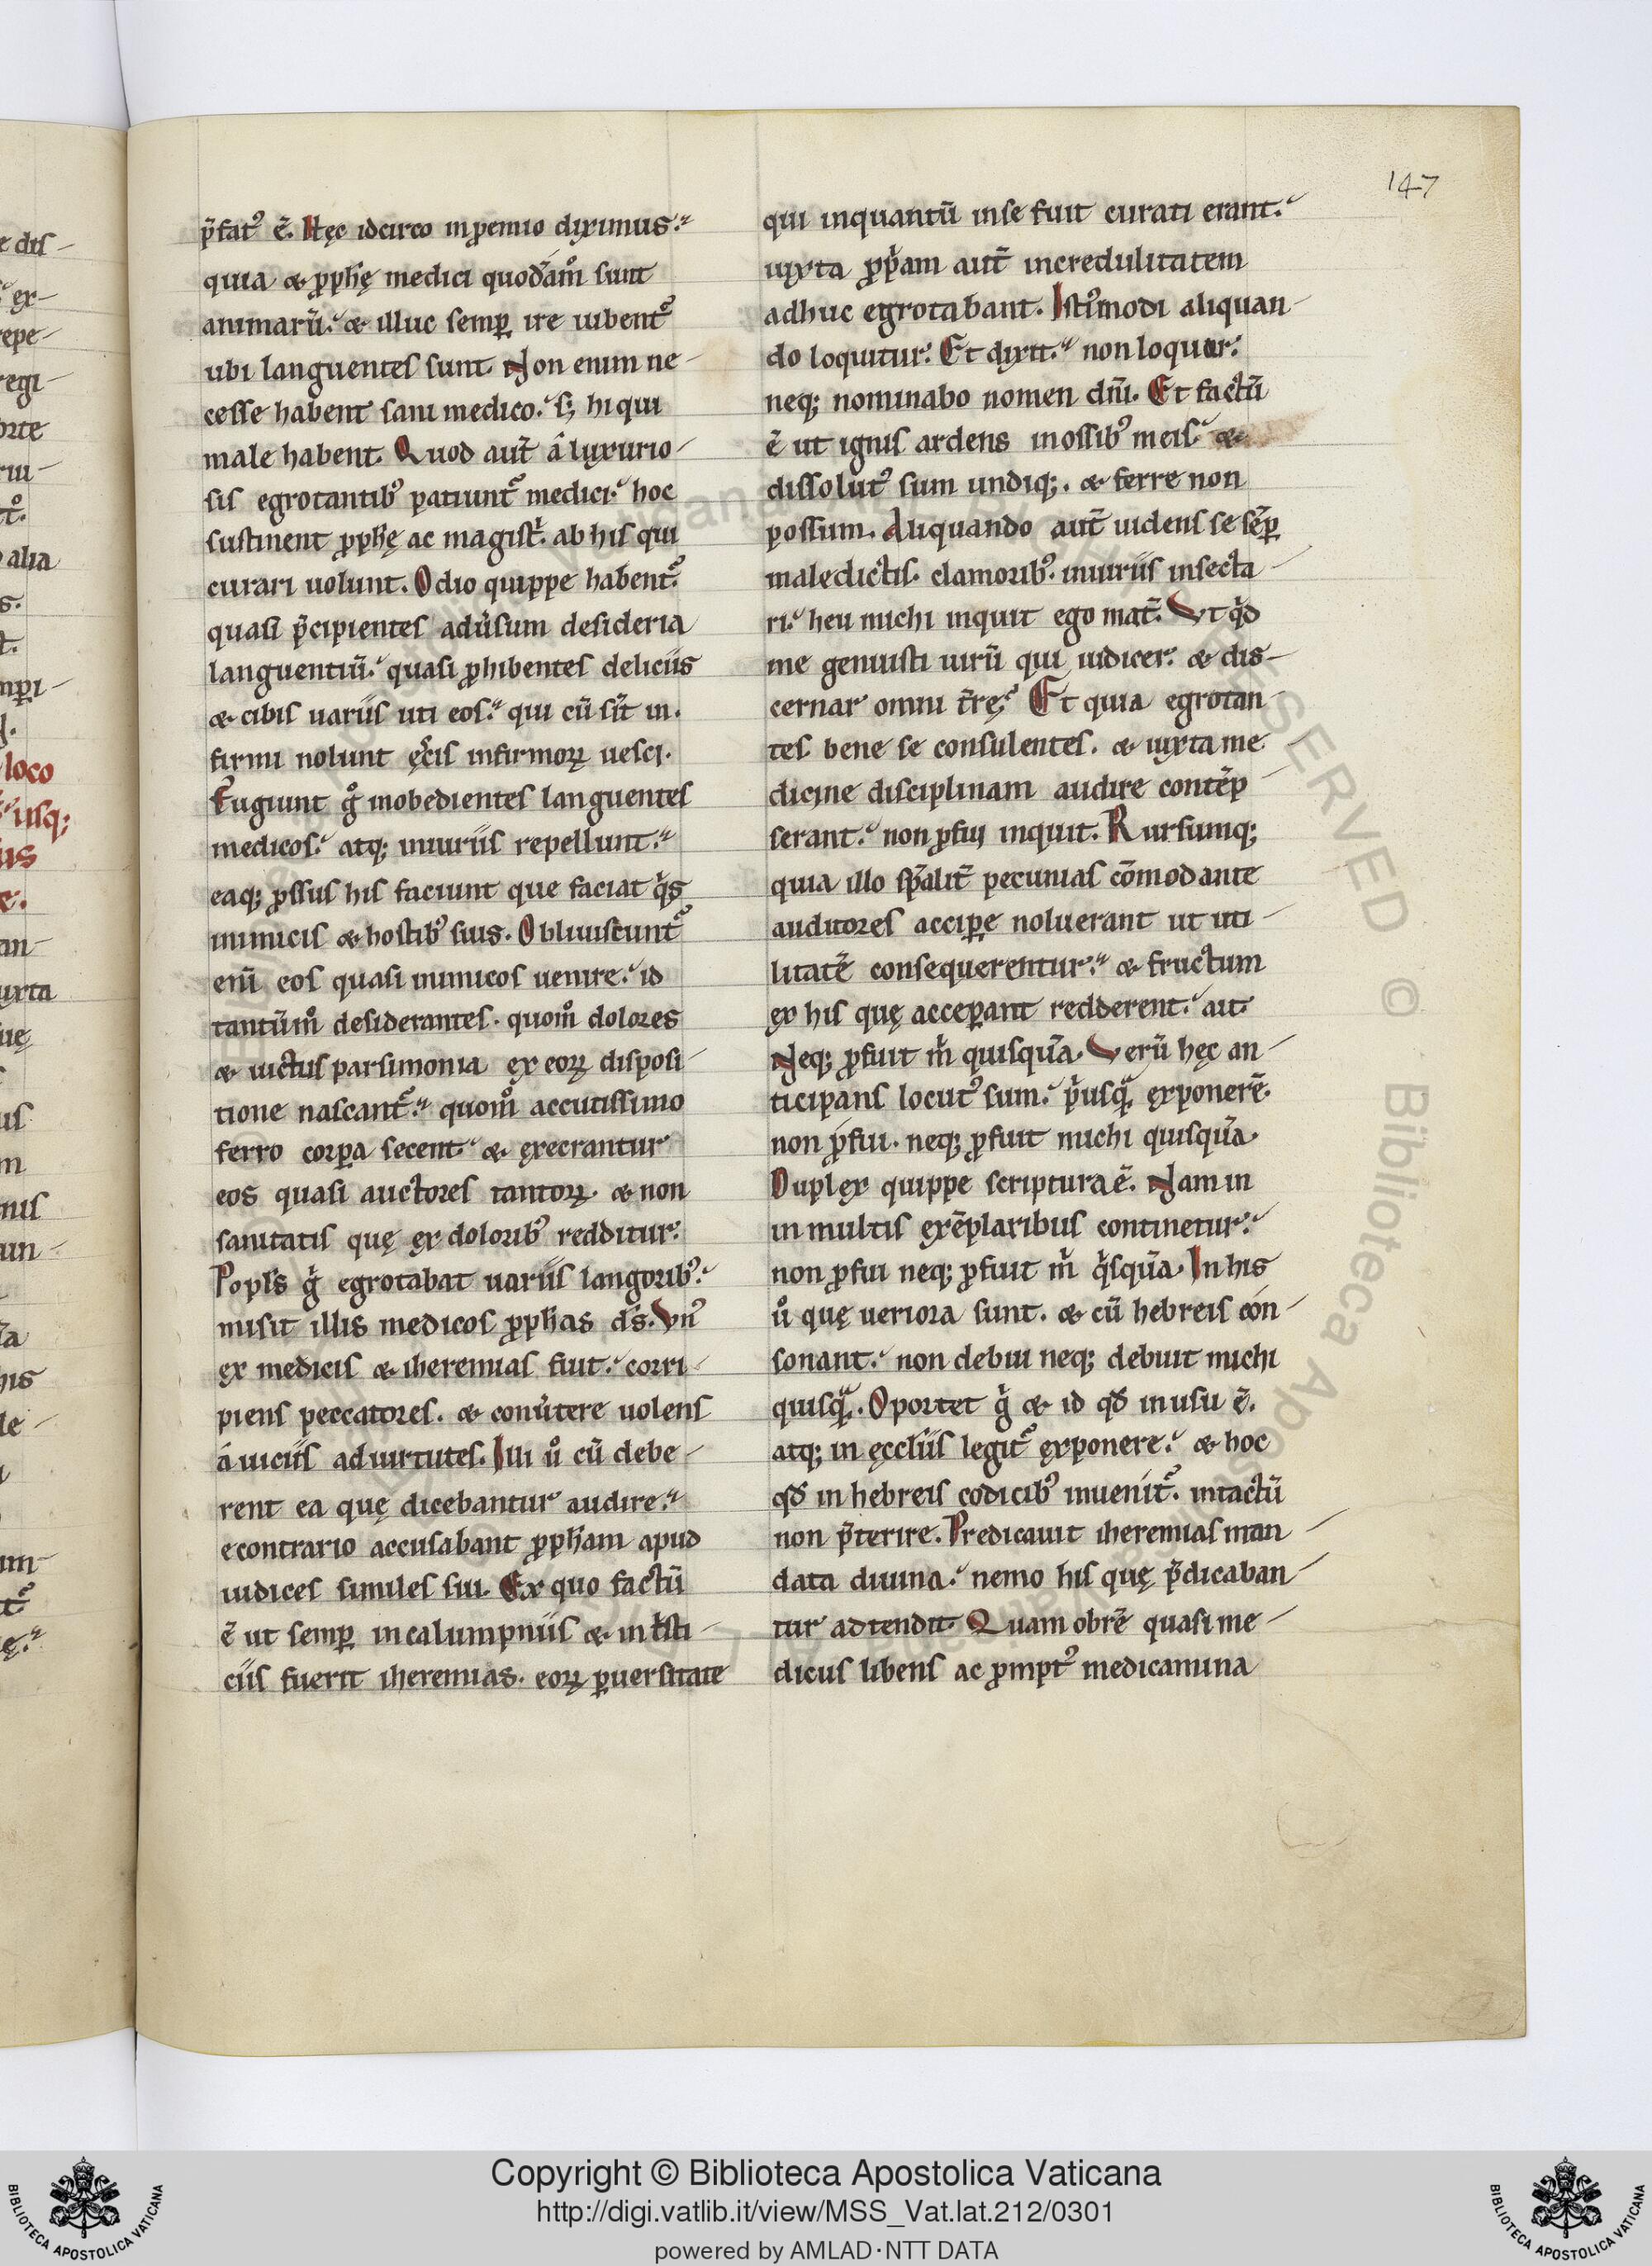 147
p̄fat᷒ ē. Hęc idcirco in ꝓemio diximus.
quia & ꝓpħę medici quodāmͦ sunt
animarū. & illuc semꝑ ire iubent᷒
ubi languentes sunt. Non enim ne-
cesse habent sani medico. s; hi qui
male habent. Quod aut̄ á luxurio-
sis egrotantib᷒ patiunt᷒ medici. hoc
sustinent ꝓpħę ac magist̄. ab his qui
curari uolunt. Odio quippe habent᷒.
quasi p̄cipientes adūsum desideria
languentiū. quasi ꝓhibentes deliciis
& cibis uariis uti eos. qui cū sīt in.
firmi nolunt ęc̄is infirmoꝝ uesci.
Fugiunt gͦ inobedientes languentes
medicos. atq; iniuriis repellunt.
eaq; ꝓssus his faciunt que faciat qͥs
inimicis & hostib᷒ suis. Obliuiscunt᷒
enī eos quasi inimicos uenire. id
tantūmͦ desiderantes. quomͦ dolores
& uictus parsimonia ex eoꝝ disposi-
tione nascant᷒. quomͦ accutissimo
ferro corꝑa secent. & execrantur
eos quasi auctores tantoꝝ. & non
sanitatis quę ex dolorib᷒ redditur.
Popl's gͦ egrotabat uariis langorib᷒.
misit illis medicos ꝓpħas d̄s. Vn᷒
ex medicis & iheremias fuit. corri-
piens peccatores. & conūtere uolens
á uiciis ad uirtutes. Illi uͦ cū debe-
rent ea quę dicebantur audire.
econtrario accusabant ꝓpħam apud
iudices similes sui. Ex quo factū
ē ut semꝑ in calumpniis & in t̄sti-
ciis fuerit iheremias. eoꝝ ꝑuersitate
qui inquantū in se fuit curati erant.
iuxta ꝓpͥam aut̄ incredulitatem
adhuc egrotabant. Isti᷒modi aliquan-
do loquitur. Et dixit. non loquar.
neq; nominabo nomen dn̄i. Et factū
ē ut ignis ardens in ossib᷒ meis. &
dissolut᷒ sum undiq;. & ferre non
possum. Aliquando aut̄ uidens se sēꝑ
maledictis. clamorib᷒. iniuriis insecta-
ri. heu michi inquit ego mat̄. Vt qͥd
me genuisti uirū qui iudicer. & dis-
cernar omni t̄rę. Et quia egrotan-
tes bene se consulentes. & iuxta me
dicine disciplinam audire contēp-
serant. non ꝓfui inquit. Rursumq;
quia illo sp̄alit̄ pecunias cōmodante
auditores acciꝑe noluerant ut uti-
litatē consequerentur. & fructum
ex his quę acceꝑant redderent. ait.
Neq; ꝓfuit mͥ quisquā. Verū hęc an-
ticipans locut᷒ sum. pͥusqͣ exponerē.
non ꝓfui. neq; ꝓfuit michi quisquā.
Duplex quippe scriptura ē. Nam in
in multis exēplaribus continetur.
non ꝓfui neq; ꝓfuit mͥ qͥsquā. In his
uͦ quę ueriora sunt. & cū hebreis con-
sonant. non debui neq; debuit michi
quisqͣ. Oportet gͦ & id qd̄ in usu ē.
atq; in ęccl'iis legit᷒ exponere. & hoc
qd̄ in hebreis codicib᷒ inuenit᷒. intactū
non p̄terire. Predicauit iheremias man-
data diuina. nemo his quę p̄dicaban-
tur adtendit. Quam obrē quasi me-
dicus libens ac ꝓmpt᷒ medicamina
Copyright © Biblioteca Apostolica Vaticana
http://digi.vatlib.it/view/MSS_Vat.lat.212/0301
powered by AMLAD·NTT DATA
BIBLIOTECA APOSTOLICA VATICANA
BIBLIOTECA APOSTOLICA VATICANA